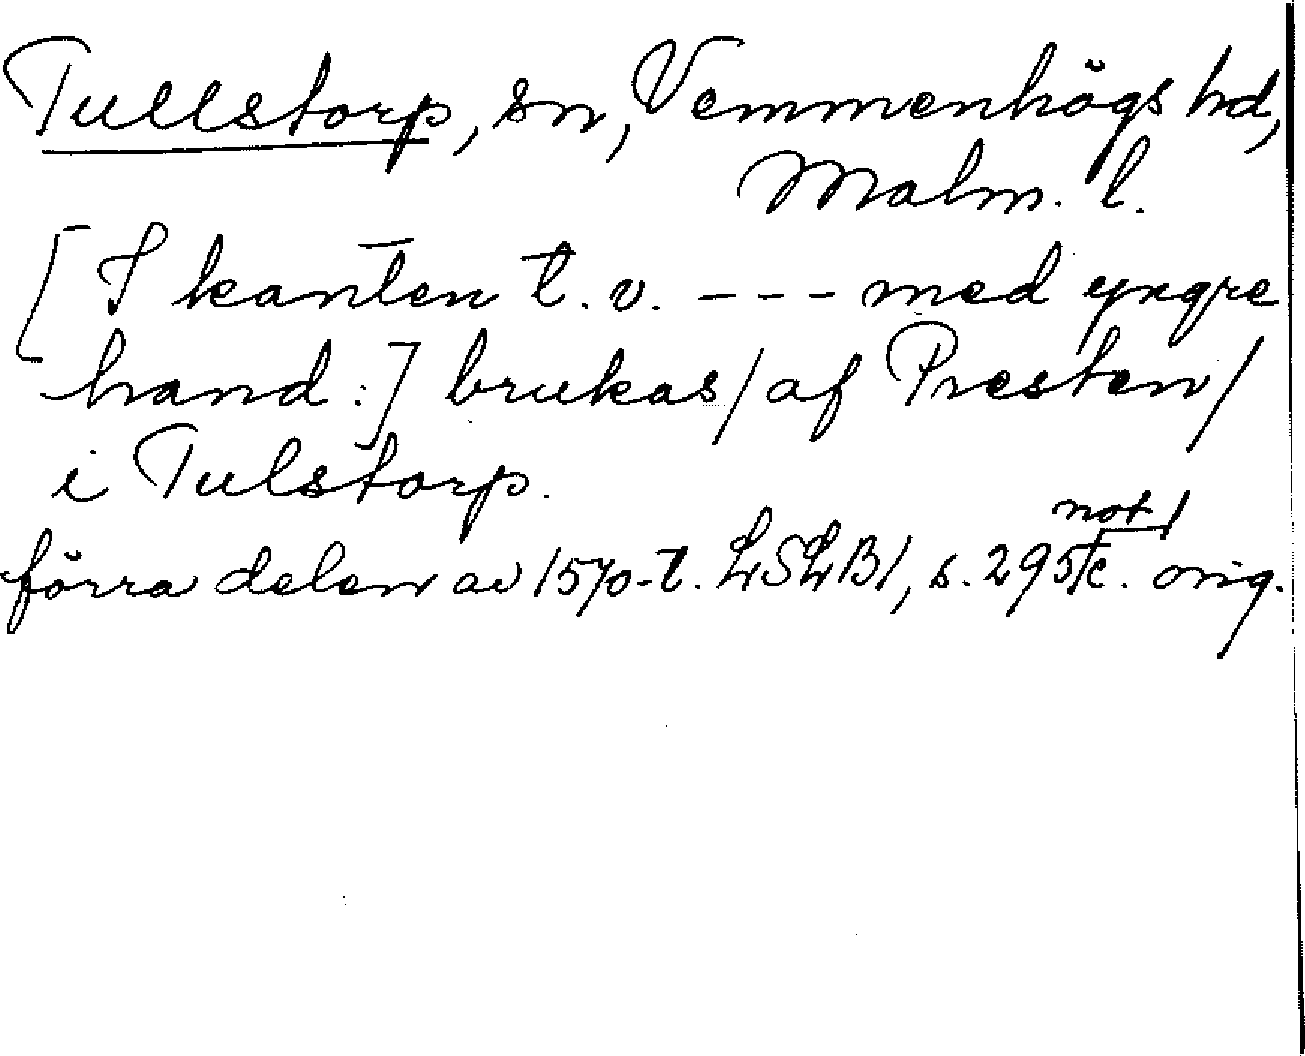 Tullstorp, sn, Vemmenhögs hd,
Malm. l.
[I kanten t. v. --- med yngre
hand:] brukas / af Presten /
i Tulstorp.
förra delen av 1570-t. LSLB1, s. 295 not 1 c. orig.